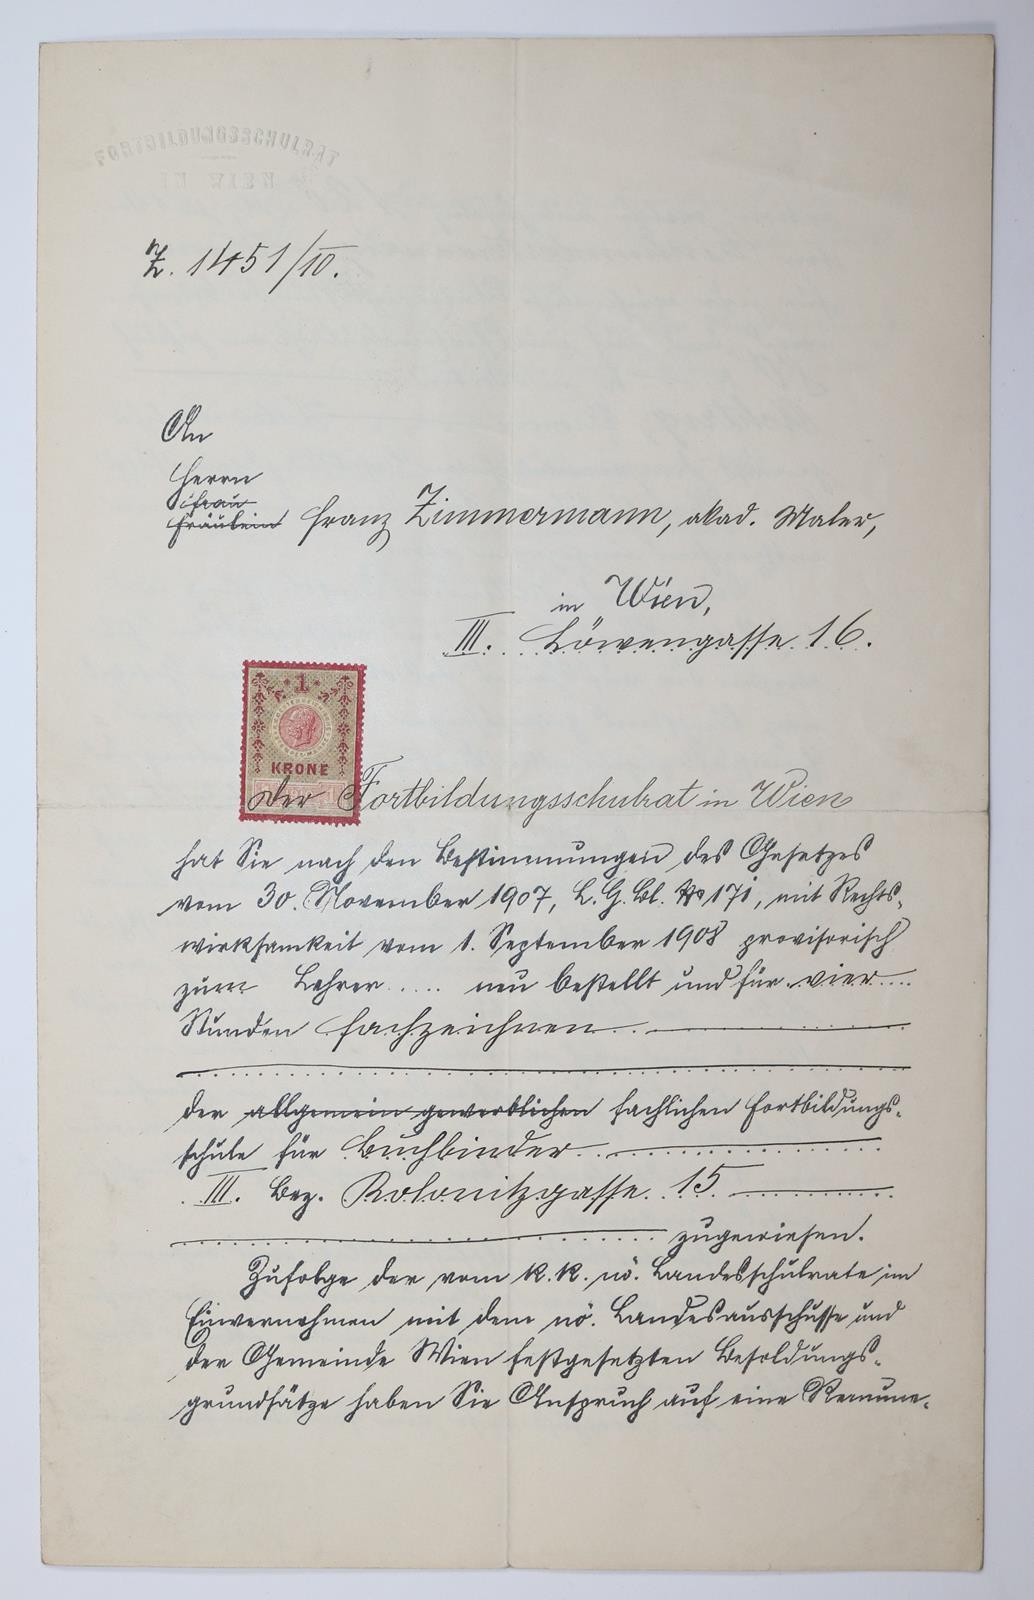 FORTBILDUNGSSCHULRAT
WIEN
Z. 1451/10.
An
Herrn
Frau
Fräulein Franz Zimmermann, akad. Maler,
in Wien,
III. Löwengasse 16.
1
KRONE
Der Fortbildungsschulrat in Wien
hat Sie nach den Bestimmungen des Gesetzes
vom 30. November 1907, L.G.Bl. No 171, mit Rechts-
wirksamkeit vom 1. September 1908 provisorisch
zum Lehrer .... neu bestellt und für vier ....
Stunden Fachzeichnen
der allgemein gewerblichen fachlichen Fortbildungs-
schule für Buchbinder
III. Bez. Kolonitzgasse 15
zugewiesen.
Zufolge der vom k.k. nö. Landesschulrate im
Einvernehmen mit dem nö. Landesausschusse und
der Gemeinde Wien festgesetzten Besoldungs-
grundsätze haben Sie Anspruch auf eine Remune-